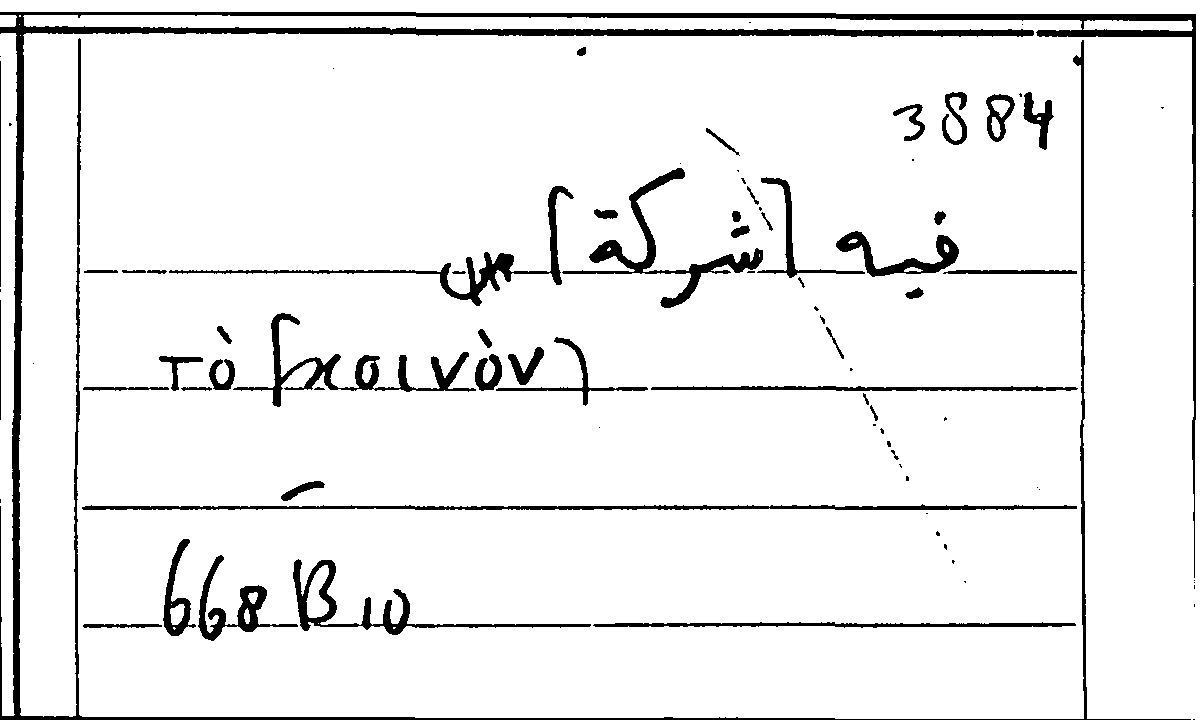 3884
فيه [شركة]
τὸ [κοινὸν]
668 B 10